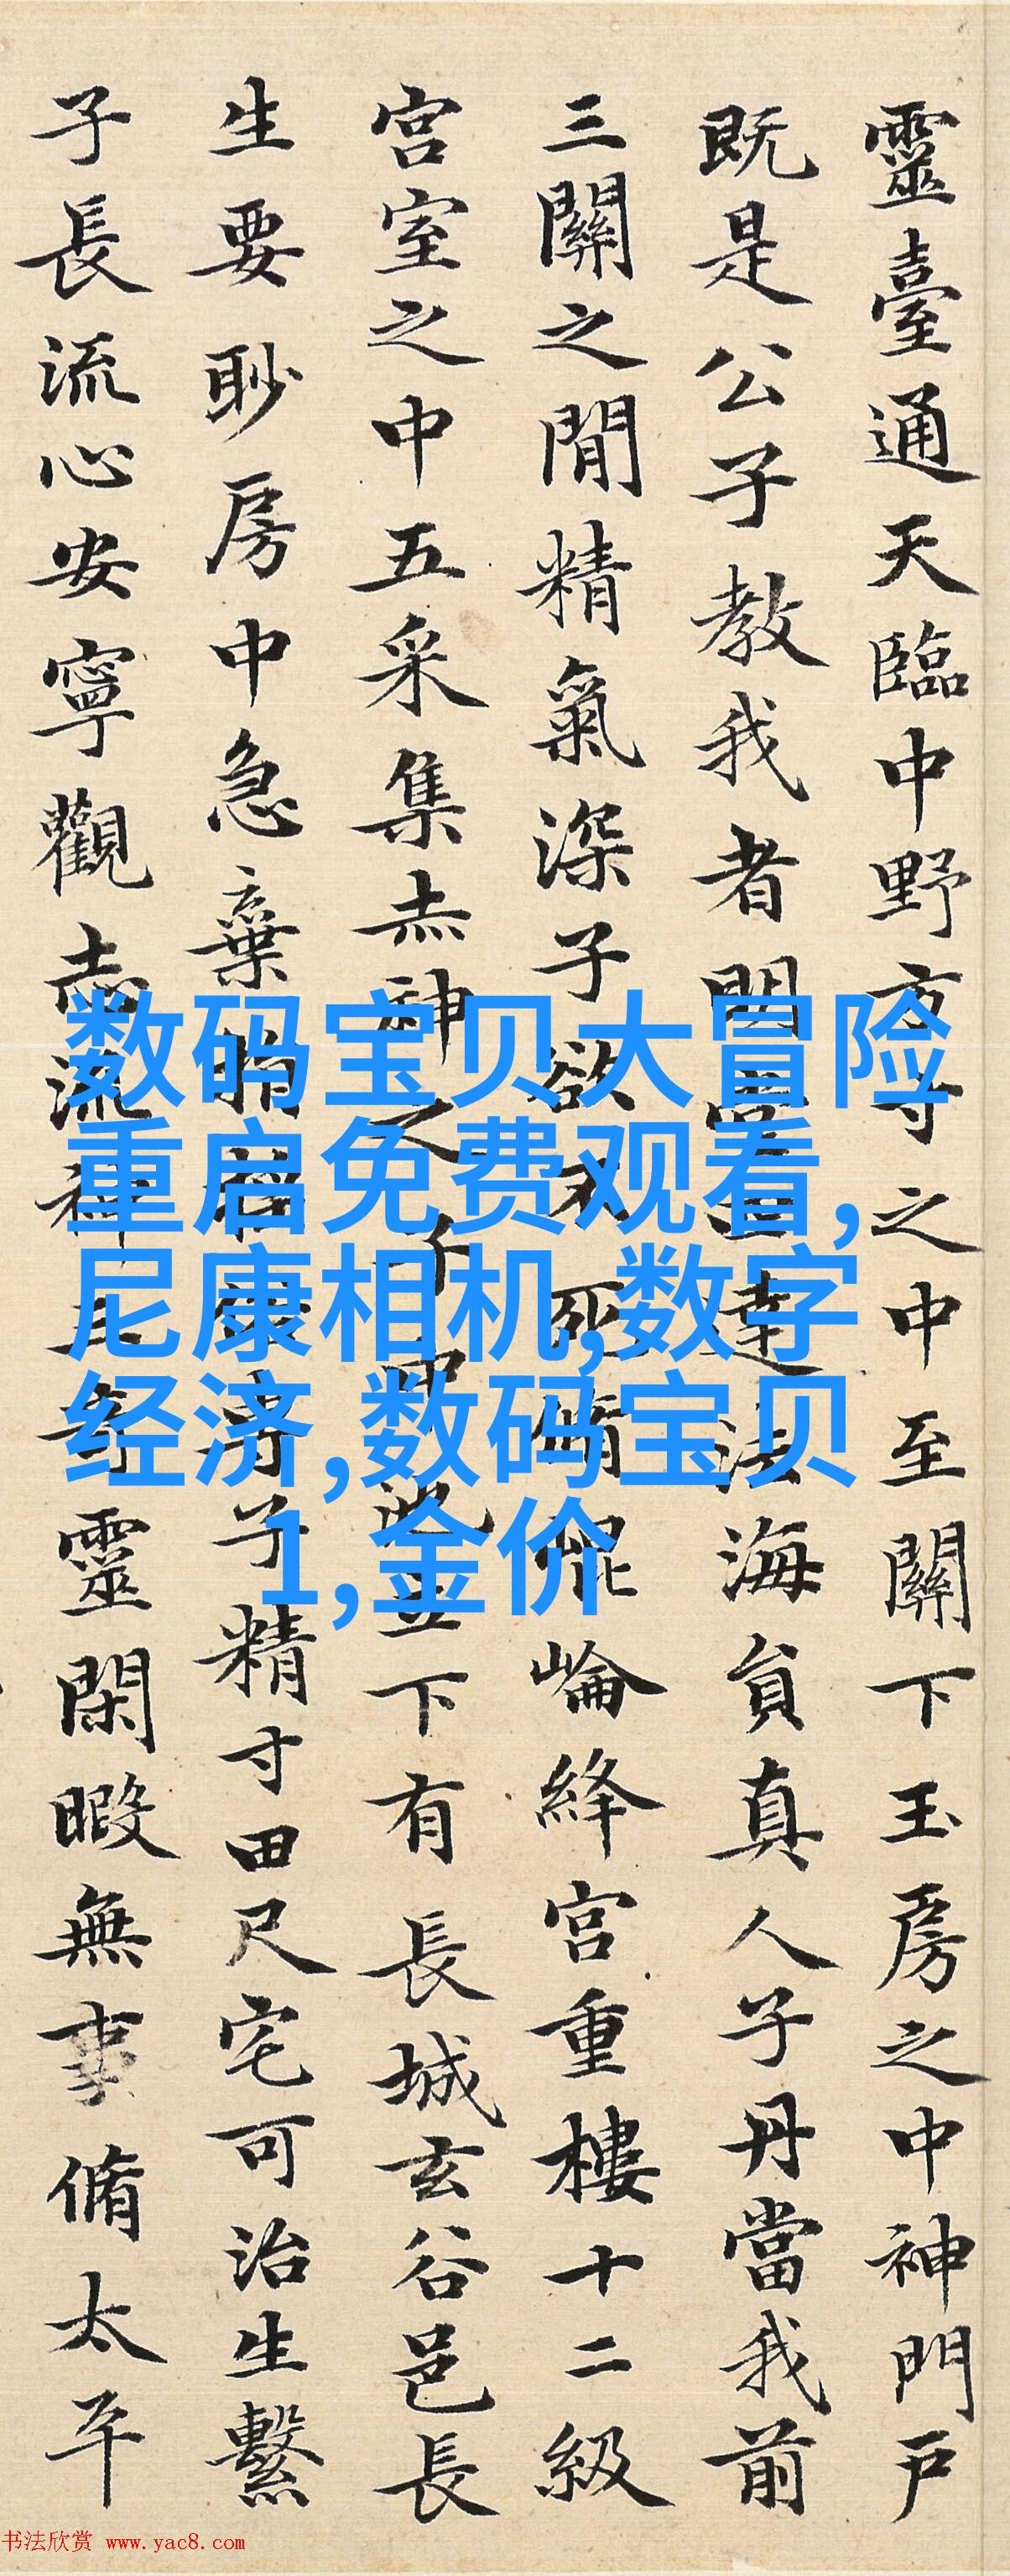 靈臺通天臨中野方寸之中至關下玉房之中神門戶
既是公子教我者明堂四達法海貟真人子丹當我前
三關之閒精氣深子欲不死脩崐崘絳宮重樓十二級
宮室之中五采集赤神之子中池立下有長城玄谷邑長
生要眇房中急棄捐子精寸田尺宅可治生繫
子長流心安寧觀志流神三奇靈閑暇無事脩太平
数码宝贝大冒险
重启免费观看,
尼康相机,数字
经济,数码宝贝
1,金价
书法欣赏 www.yac8.com